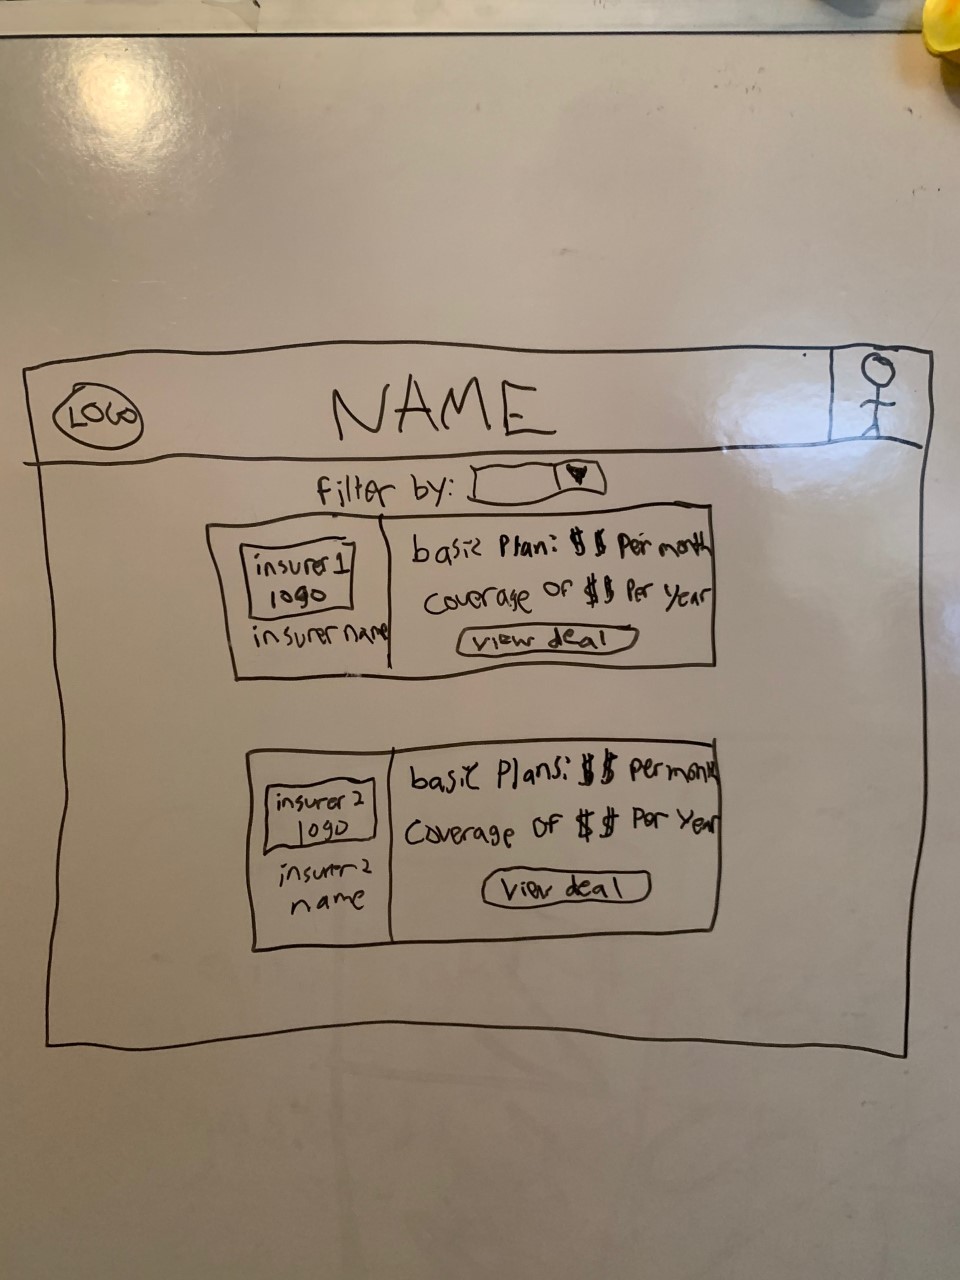 LOGO
NAME
filter by:
insurer 1
logo
insurer name
basic Plan: $$ Per month
coverage of $$ Per Year
view deal
insurer 2
logo
insurer 2
name
basic Plans: $$ Per month
Coverage of $$ Per Year
View deal